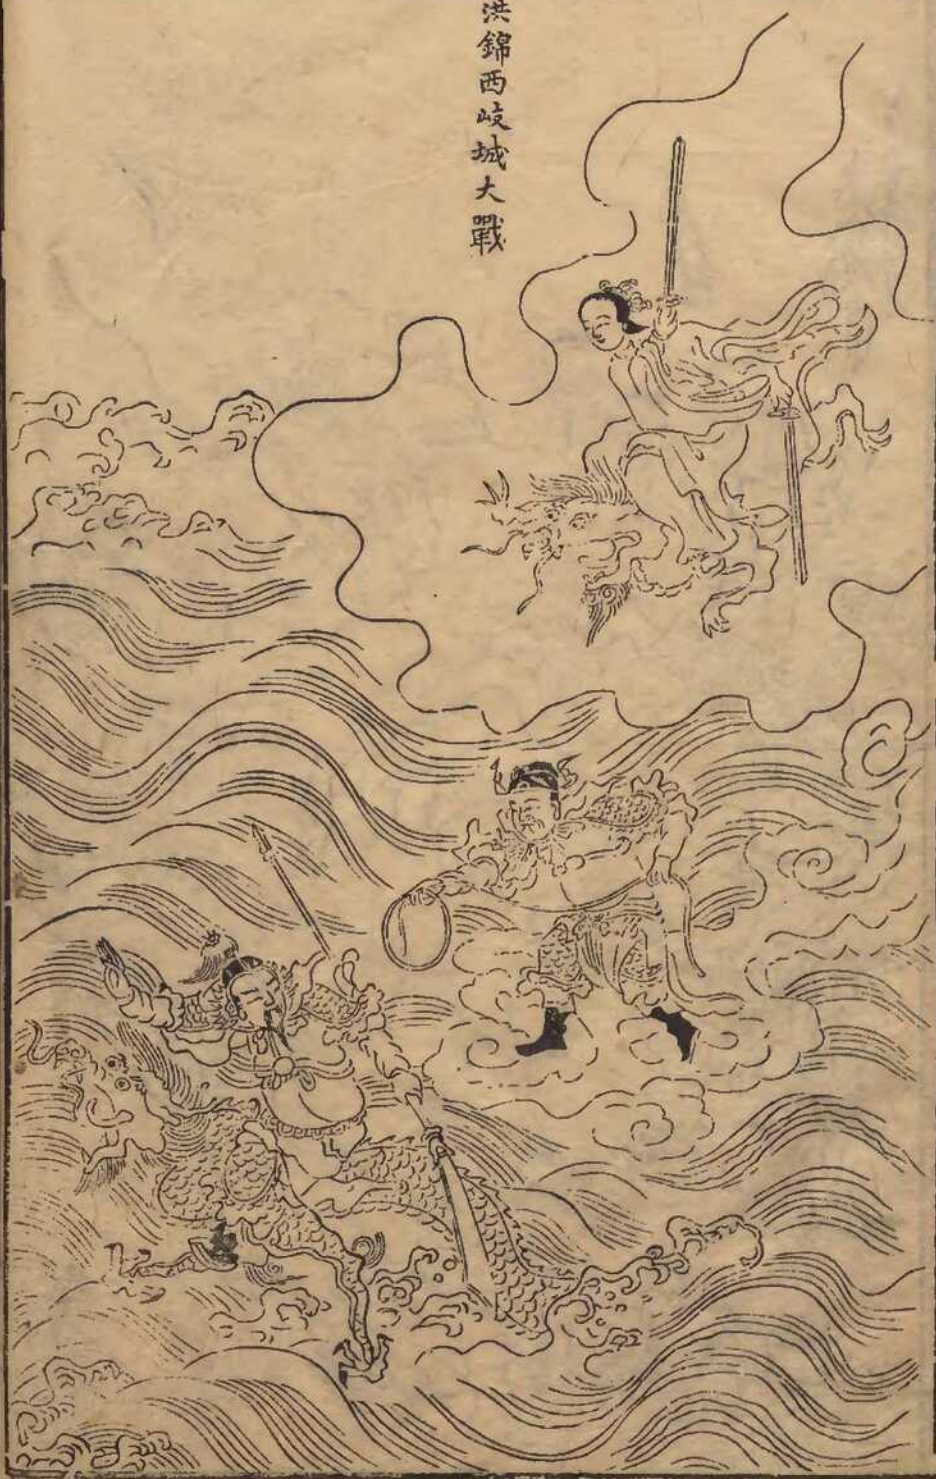 洪錦西岐城大戰